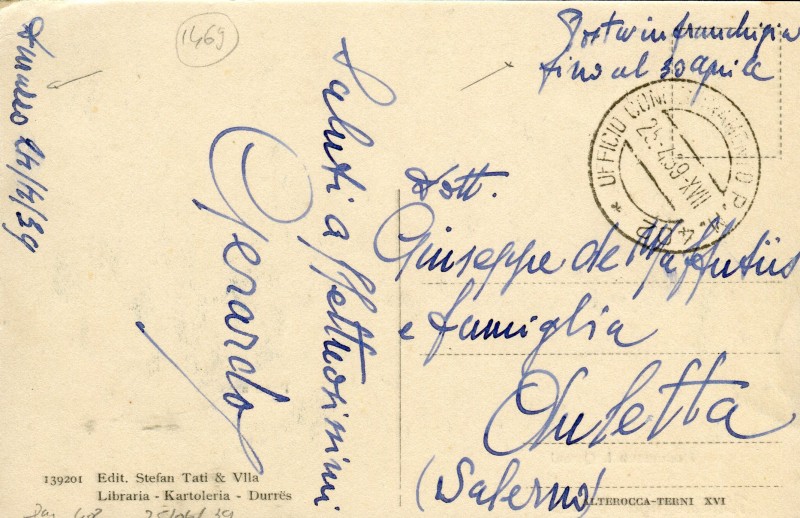 1469
Durazzo 24/4/39
Saluti affettuosissimi
Gerardo
Posta in franchigia
fino al 30 aprile
UFFICIO CONCENTRAMENTO P.M.
25.4.39.XVII
Dott.
Giuseppe de
e famiglia
Auletta
(Salerno)
139201 Edit. Stefan Tati & Vlla
Libraria - Kartoleria - Durrës
ALTEROCCA-TERNI XVI